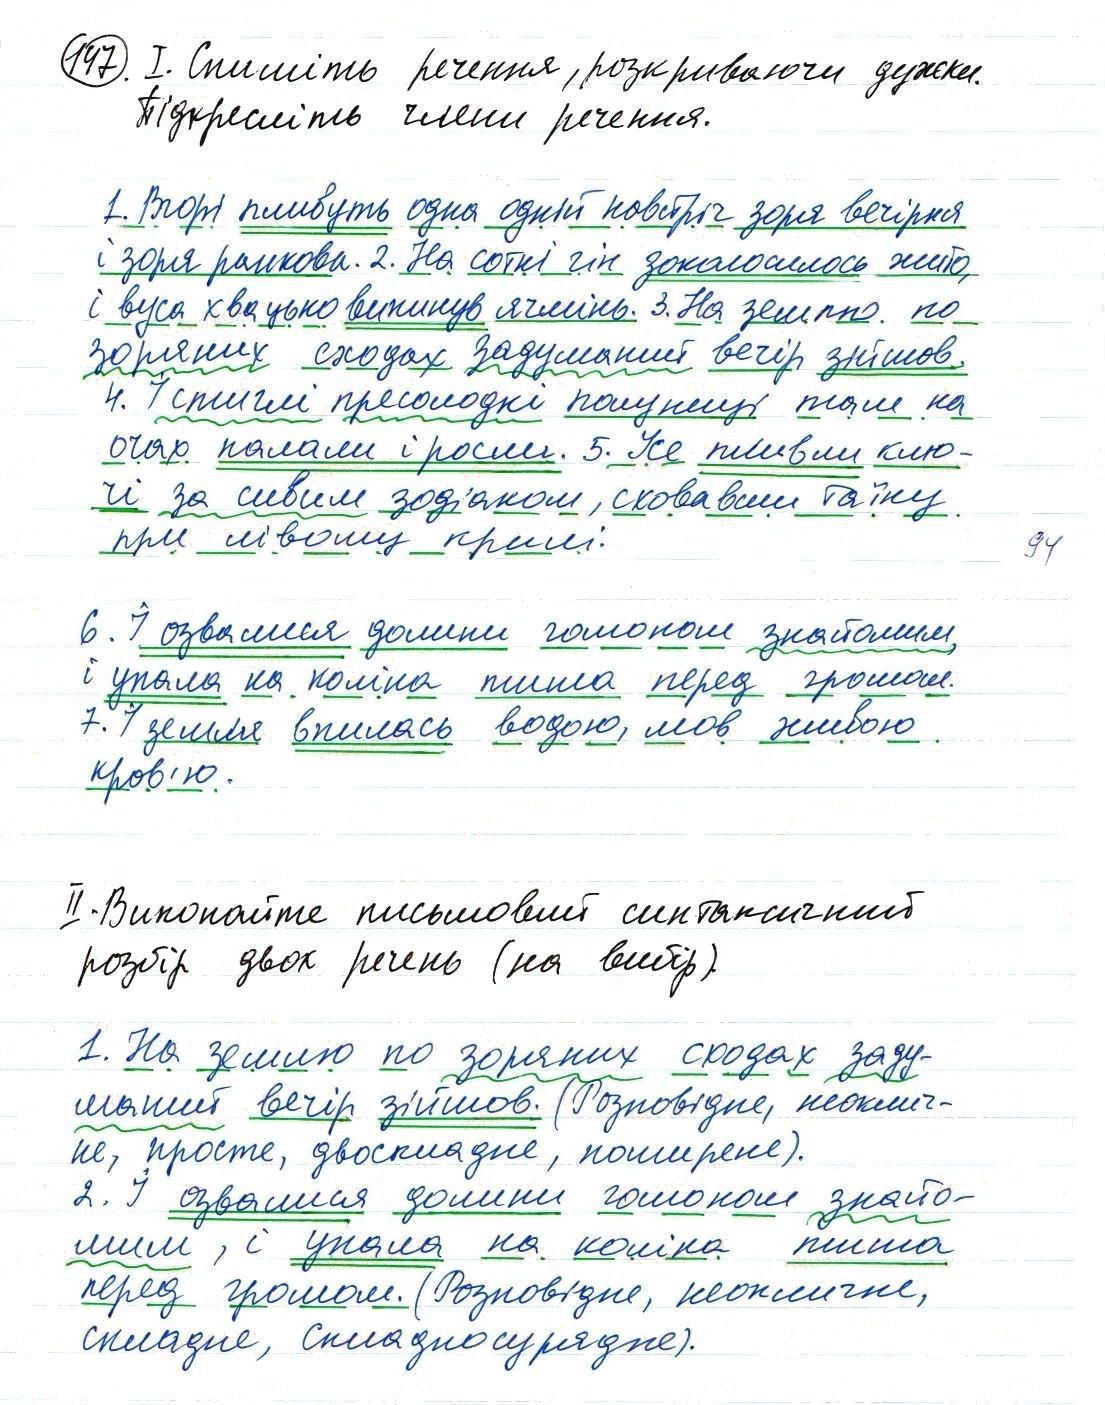 147. I. Спишіть речення, розкриваючи дужки.
Підкресліть члени речення.
1. Вгорі пливуть одна одній навстріч зоря вечірня
і зоря ранкова. 2. На сотні гін заколосилось жито,
і вуса хвацько викинув ячмінь. 3. На землю по
зоряних сходах задуманий вечір зійшов.
4. І стиглі пресолодкі полуниці там на
очах палали і росли. 5. Же пливли клю-
чі за сивим зодіаком, сховавши таїну
при лівому крилі.
94
6. І озвалися долини гомоном знайомим,
і упала на коліна тиша перед громом.
7. І земля впилась водою, мов живою
кров'ю.
II. Виконайте письмовий синтаксичний
розбір двох речень (на вибір).
1. На землю по зоряних сходах заду-
маний вечір зійшов. (Розповідне, неоклич-
не, просте, двоскладне, поширене).
2. І озвалися долини гомоном знайо-
мим, і упала на коліна тиша
перед громом. (Розповідне, неокличне,
складне, складносурядне).